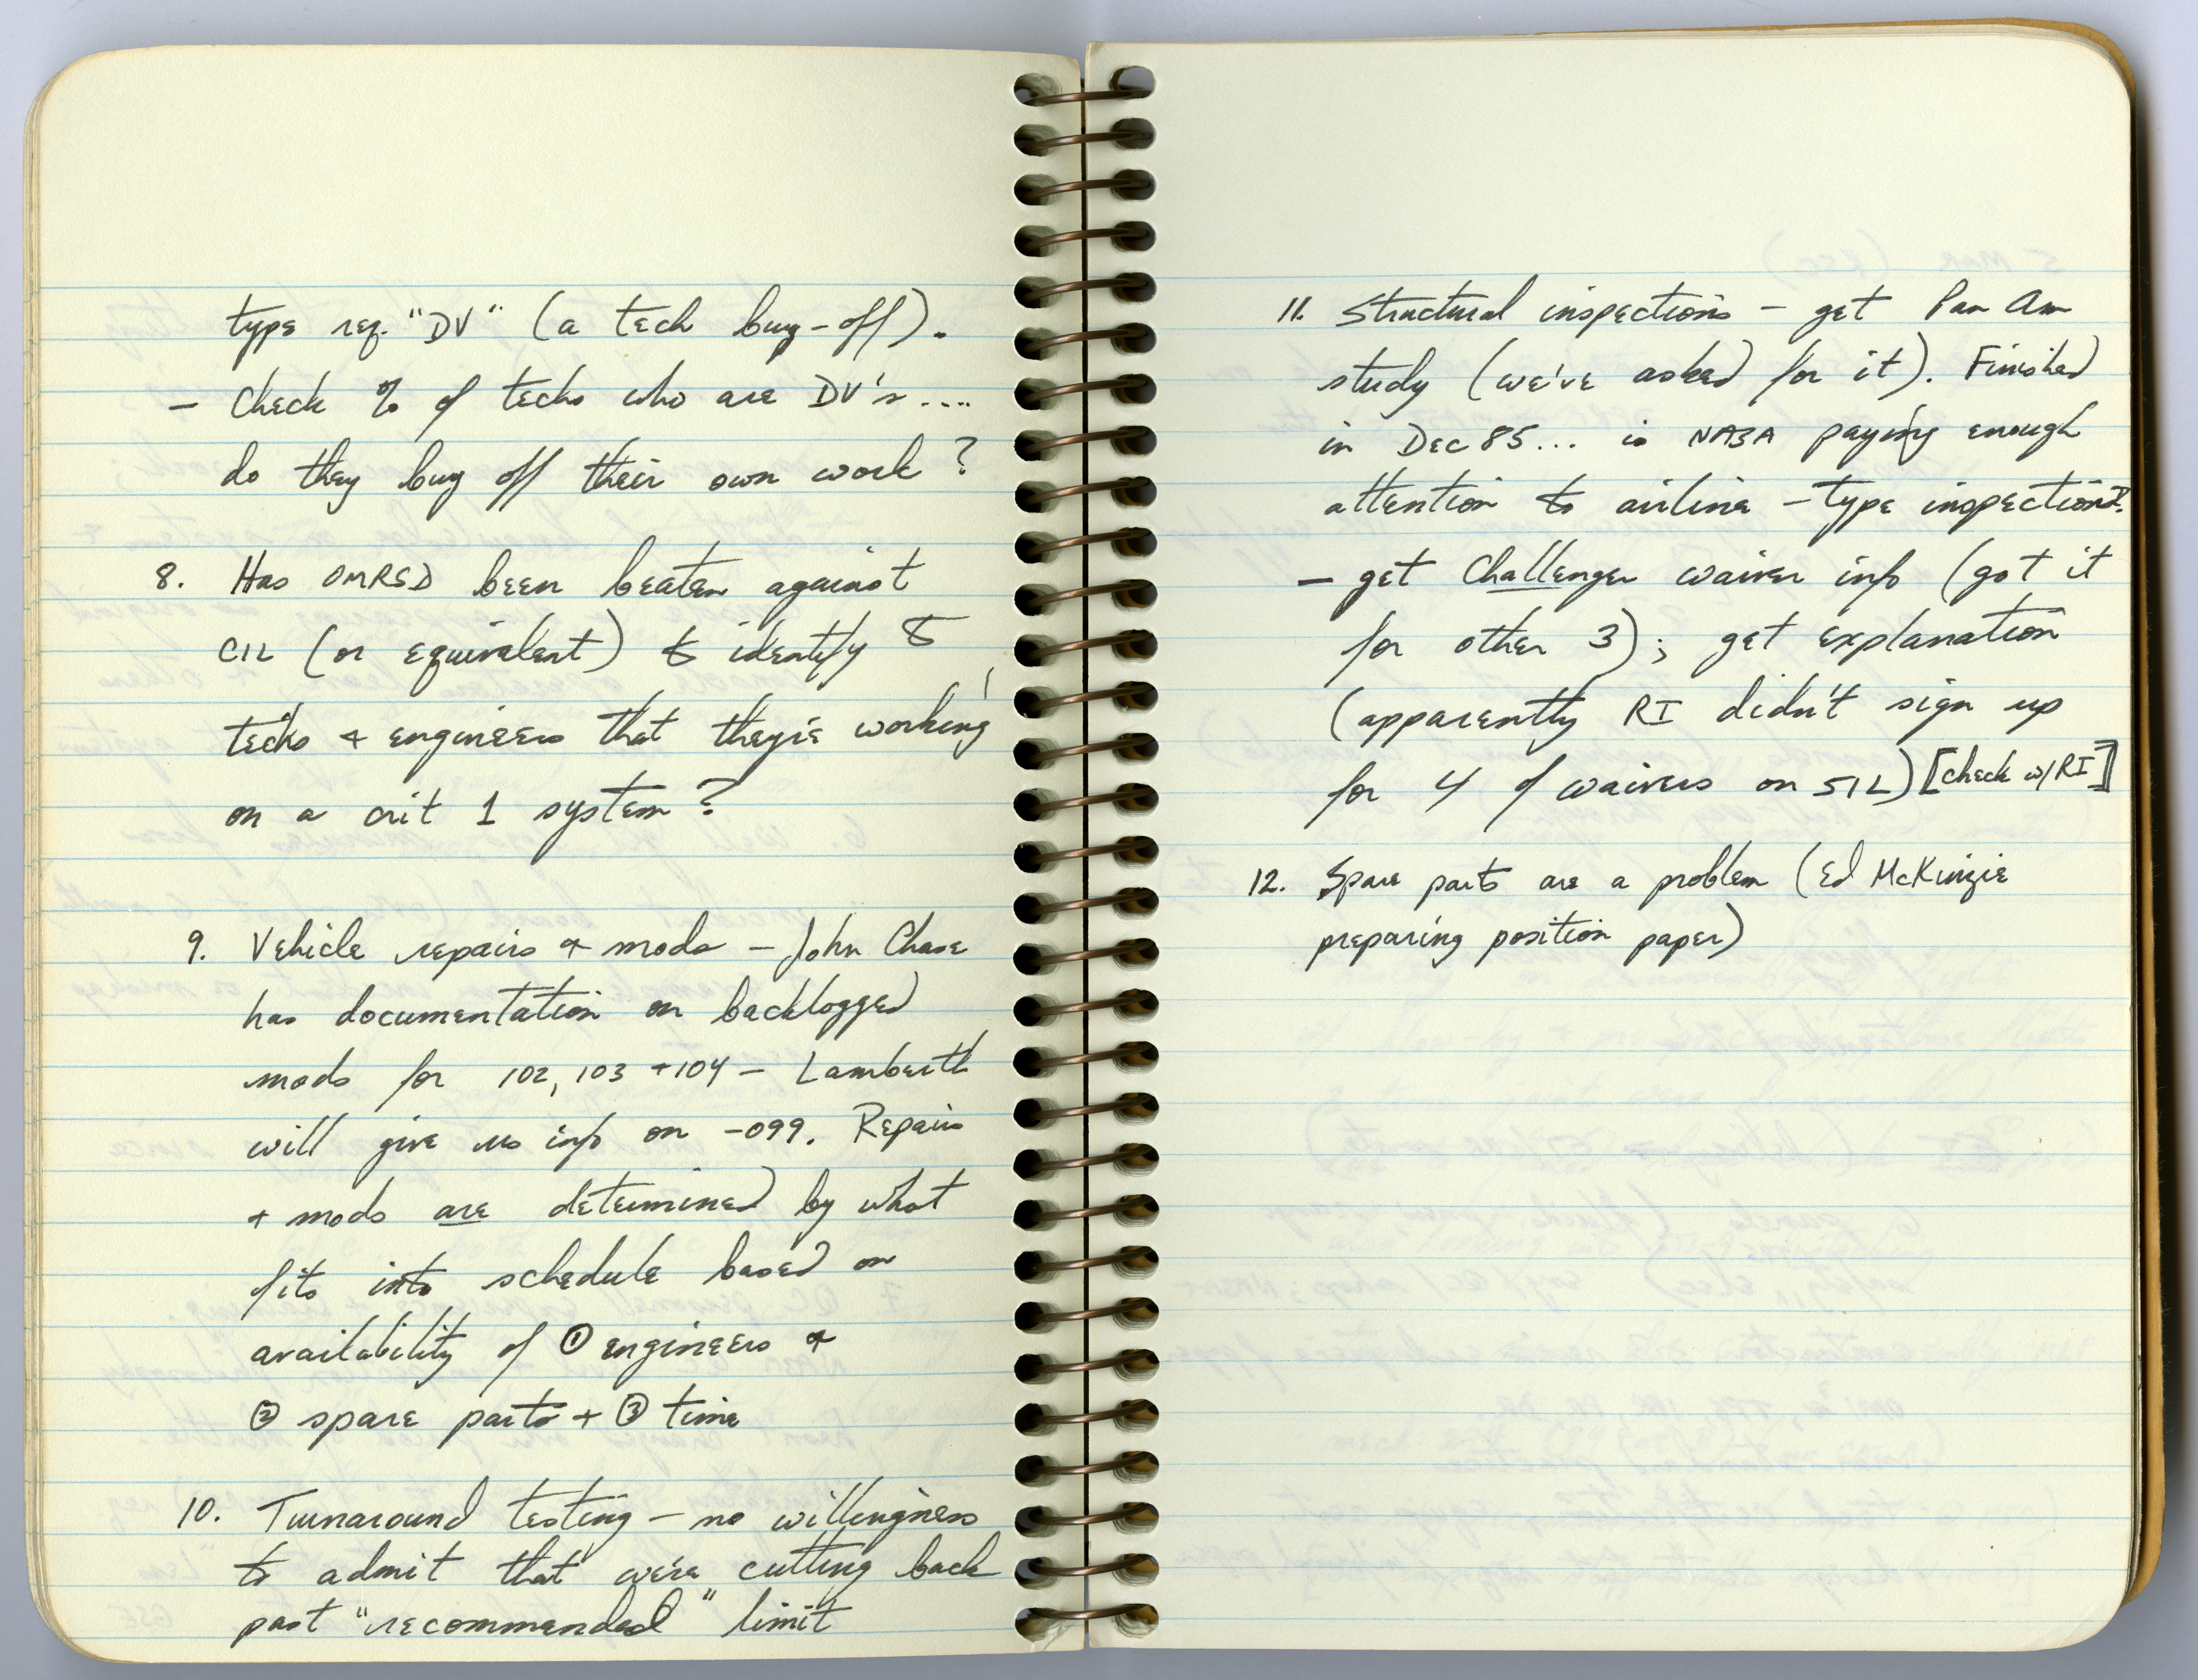 type req. "DV" (a tech buy-off).
- Check % of techs who are DV's....
do they buy off their own work?
8. Has OMRSD been beaten against
CIL (or equivalent) to identify to
techs + engineers that they're working
on a crit 1 system?
9. Vehicle repairs + mods - John Chase
has documentation on backlogged
mods for 102, 103 + 104 - Lamberth
will give us info on -099. Repairs
+ mods are determined by what
fits into schedule based on
availability of ① engineers +
② spare parts + ③ time
10. Turnaround testing - no willingness
to admit that we're cutting back
past "recommended" limit
11. Structural inspections - get Pan Am
study (we've asked for it). Finished
in Dec 85... is NASA paying enough
attention to airline-type inspections?
- get Challenger waiver info (got it
for other 3); get explanation
(apparently RI didn't sign up
for 4 of waivers on 51L) [check w/ RI]
12. Spare parts are a problem (Ed McKinzie
preparing position paper)